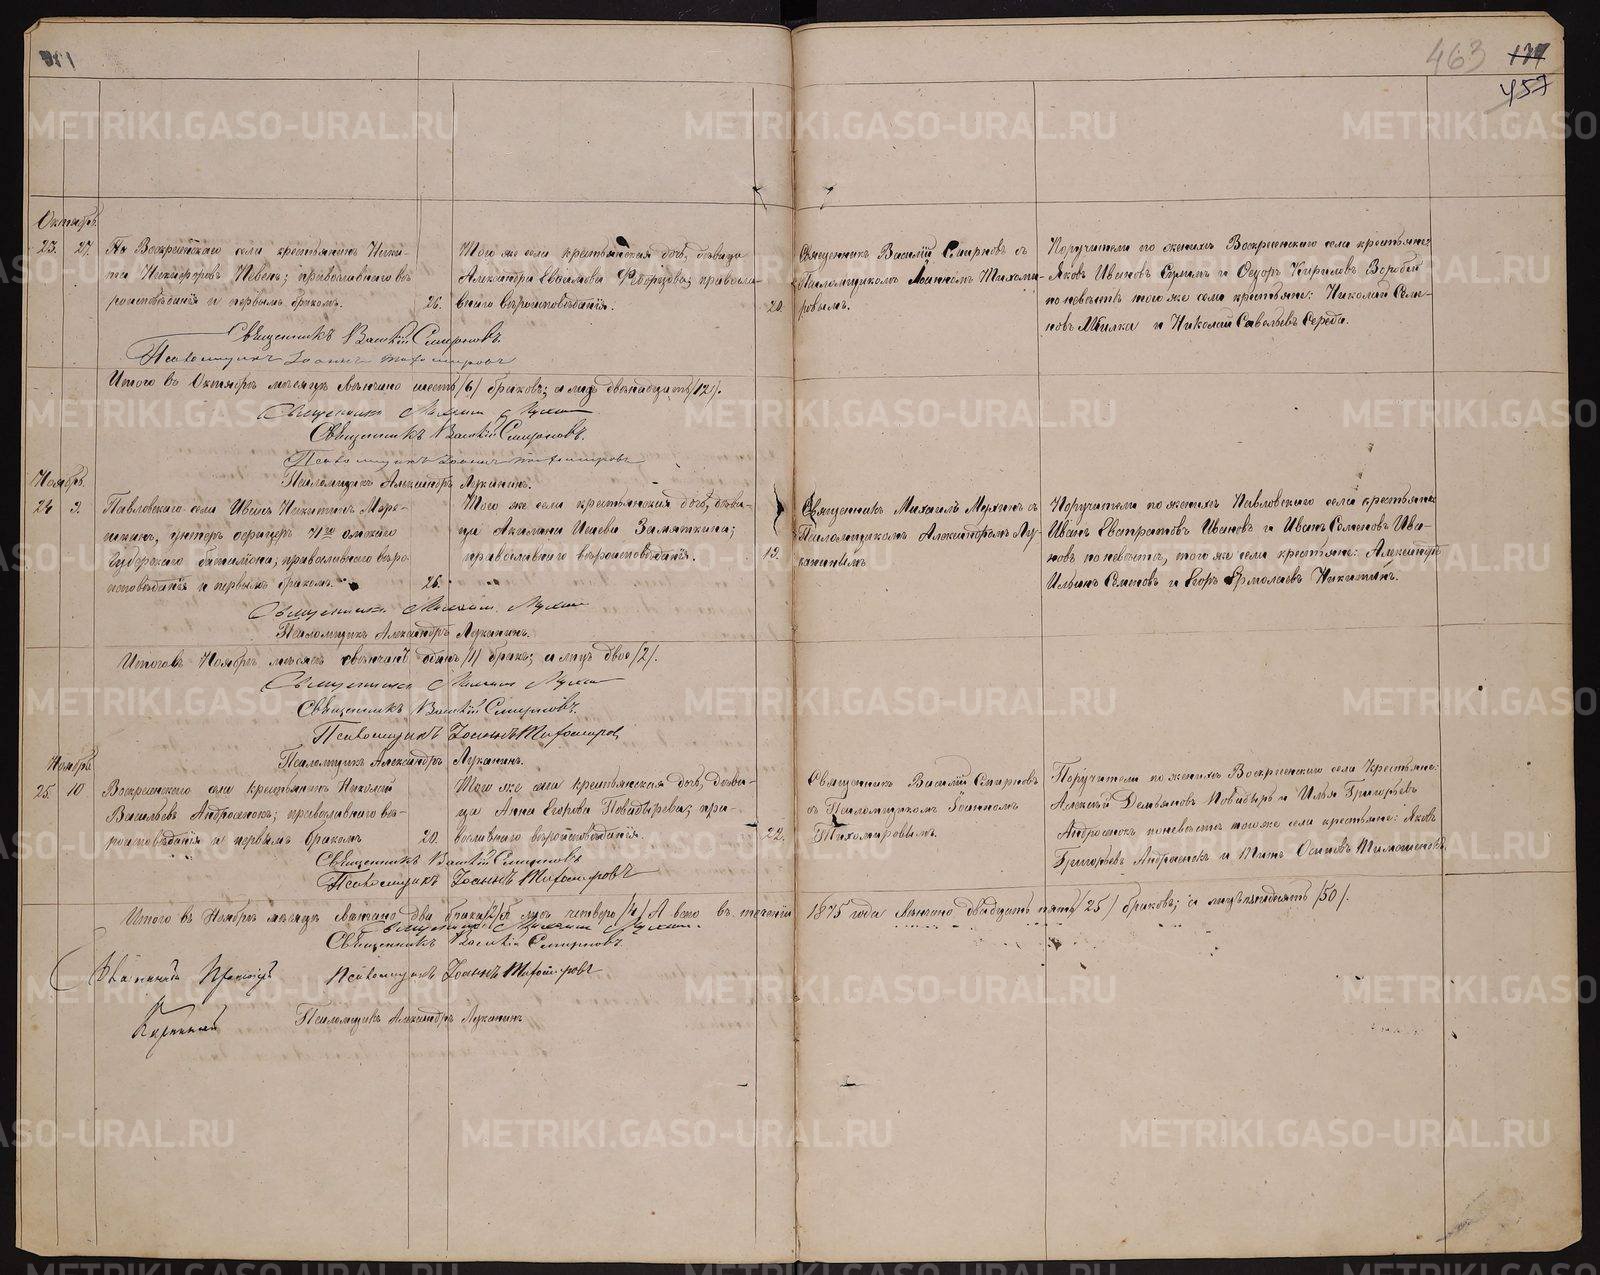 463
457
Октябрь.
23. 27. Воскресенскаго села крестьянинъ Ники-
та Никифоровъ православнаго вѣ-
роисповѣданія и первымъ бракомъ. 26.
Того же села крестьянская дочь, дѣвица
Александра православ-
наго вѣроисповѣданія. 20.
Священникъ Василій Смирновъ съ
Псаломщикомъ Іоанномъ Тихоми-
ровымъ.
Поручители по женихѣ Воскресенскаго села крестьяне:
Яковъ Ивановъ и Ѳедоръ Кириловъ Воробей
по невѣстѣ того же села крестьяне: Николай Семе-
новъ и Николай Савельевъ Середа.
Священникъ Василій Смирновъ.
Псаломщикъ Іоаннъ Тихомировъ
Итого въ Октябрѣ мѣсяцѣ вѣнчано шесть /6/ браковъ; а лицъ двѣнадцать /12/.
Священникъ Михаил Мухин
Священникъ Василій Смирновъ.
Псаломщикъ Іоаннъ Тихомировъ
Псаломщикъ Александръ Луканинъ.
Ноябрь.
24. 9. Павловскаго села Иванъ Никитинъ
унтеръ офицеръ Омскаго
Губернскаго баталіона; православнаго вѣро-
исповѣданія и первымъ бракомъ. 26.
Того же села крестьянская дочь, дѣви-
ца Акилина Замяткина;
православнаго вѣроисповѣданія. 19.
Священникъ Михаилъ Мухинъ съ
Псаломщикомъ Александромъ Лу-
канинымъ
Поручители по женихѣ Павловскаго села крестьяне
Иванъ Евстратовъ Ивановъ и Иванъ Семеновъ Ива-
новъ по невѣстѣ, того же села крестьяне: Александръ
Ильинъ Семеновъ и Егоръ Ермолаевъ Никитинъ.
Священникъ Михаил Мухин
Псаломщикъ Александръ Луканинъ.
Итого въ Ноябрѣ мѣсяцѣ свѣнчанъ одинъ /1/ бракъ; а лицъ двое /2/.
Священникъ Михаил Мухин
Священникъ Василій Смирновъ.
Псаломщикъ Іоаннъ Тихомиров
Псаломщикъ Александръ Луканинъ.
Ноябрь
25. 10 Воскресенскаго села крестьянинъ Николай
Васильевъ Андросюкъ; православнаго вѣ-
роисповѣданія и первымъ бракомъ 20.
Того же села крестьянская дочь, дѣви-
ца Анна Егорова пра-
вославнаго вѣроисповѣданія. 22.
Священникъ Василій Смирновъ
съ Псаломщикомъ Іоанномъ
Тихомировымъ.
Поручители по женихѣ Воскресенскаго села Крестьяне:
Алексѣй Демьяновъ и Илья Григорьевъ
Андросюкъ по невѣстѣ того же села крестьяне: Яковъ
Григорьевъ Андросюкъ и Титъ Осиповъ Тимошенковъ
Священникъ Василій Смирновъ
Псаломщикъ Іоаннъ Тихомировъ
Итого въ Ноябрѣ мѣсяцѣ вѣнчано два брака /2/ А лицъ четверо /4/ А всего въ теченіи 1875 года вѣнчано двадцать пять /25/ браковъ; а лицъ пятдесятъ /50/.
Священникъ Михаил Мухин.
Священникъ Василій Смирновъ.
Псаломщикъ Іоаннъ Тихомировъ
Псаломщикъ Александръ Луканинъ
METRIKI.GASO-URAL.RU